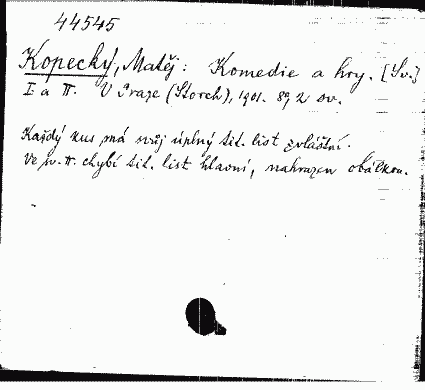 44545
Kopecký, Matěj: Komedie a hry. [Sv.]
I a II. V Praze (Storch), 1901. 8º, 2 sv.
Každý kus má svůj úplný tit. list zvláštní.
Ve sv. II. chybí tit. list hlavní, nahrazen obálkou.